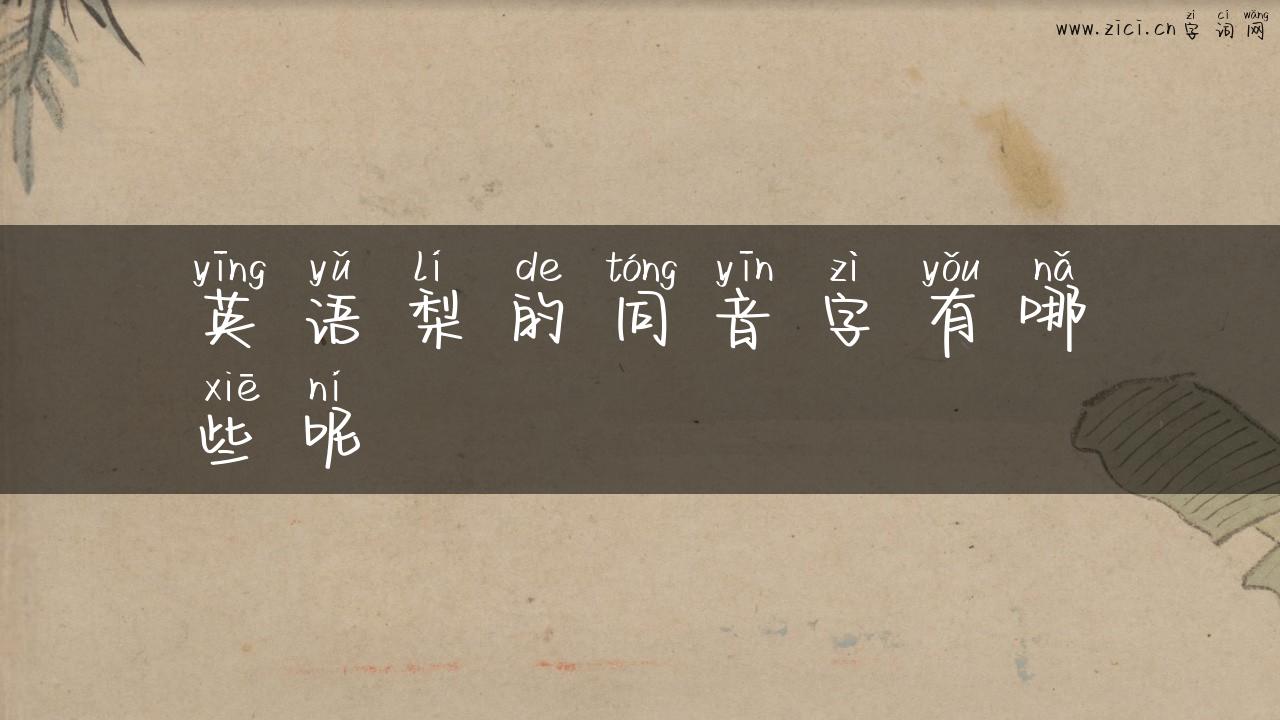 zì cí wǎng
www.zici.cn 字 词 网
yīng yǔ lí de tóng yīn zì yǒu nǎ
英 语 梨 的 同 音 字 有 哪
xiē ní
些 呢